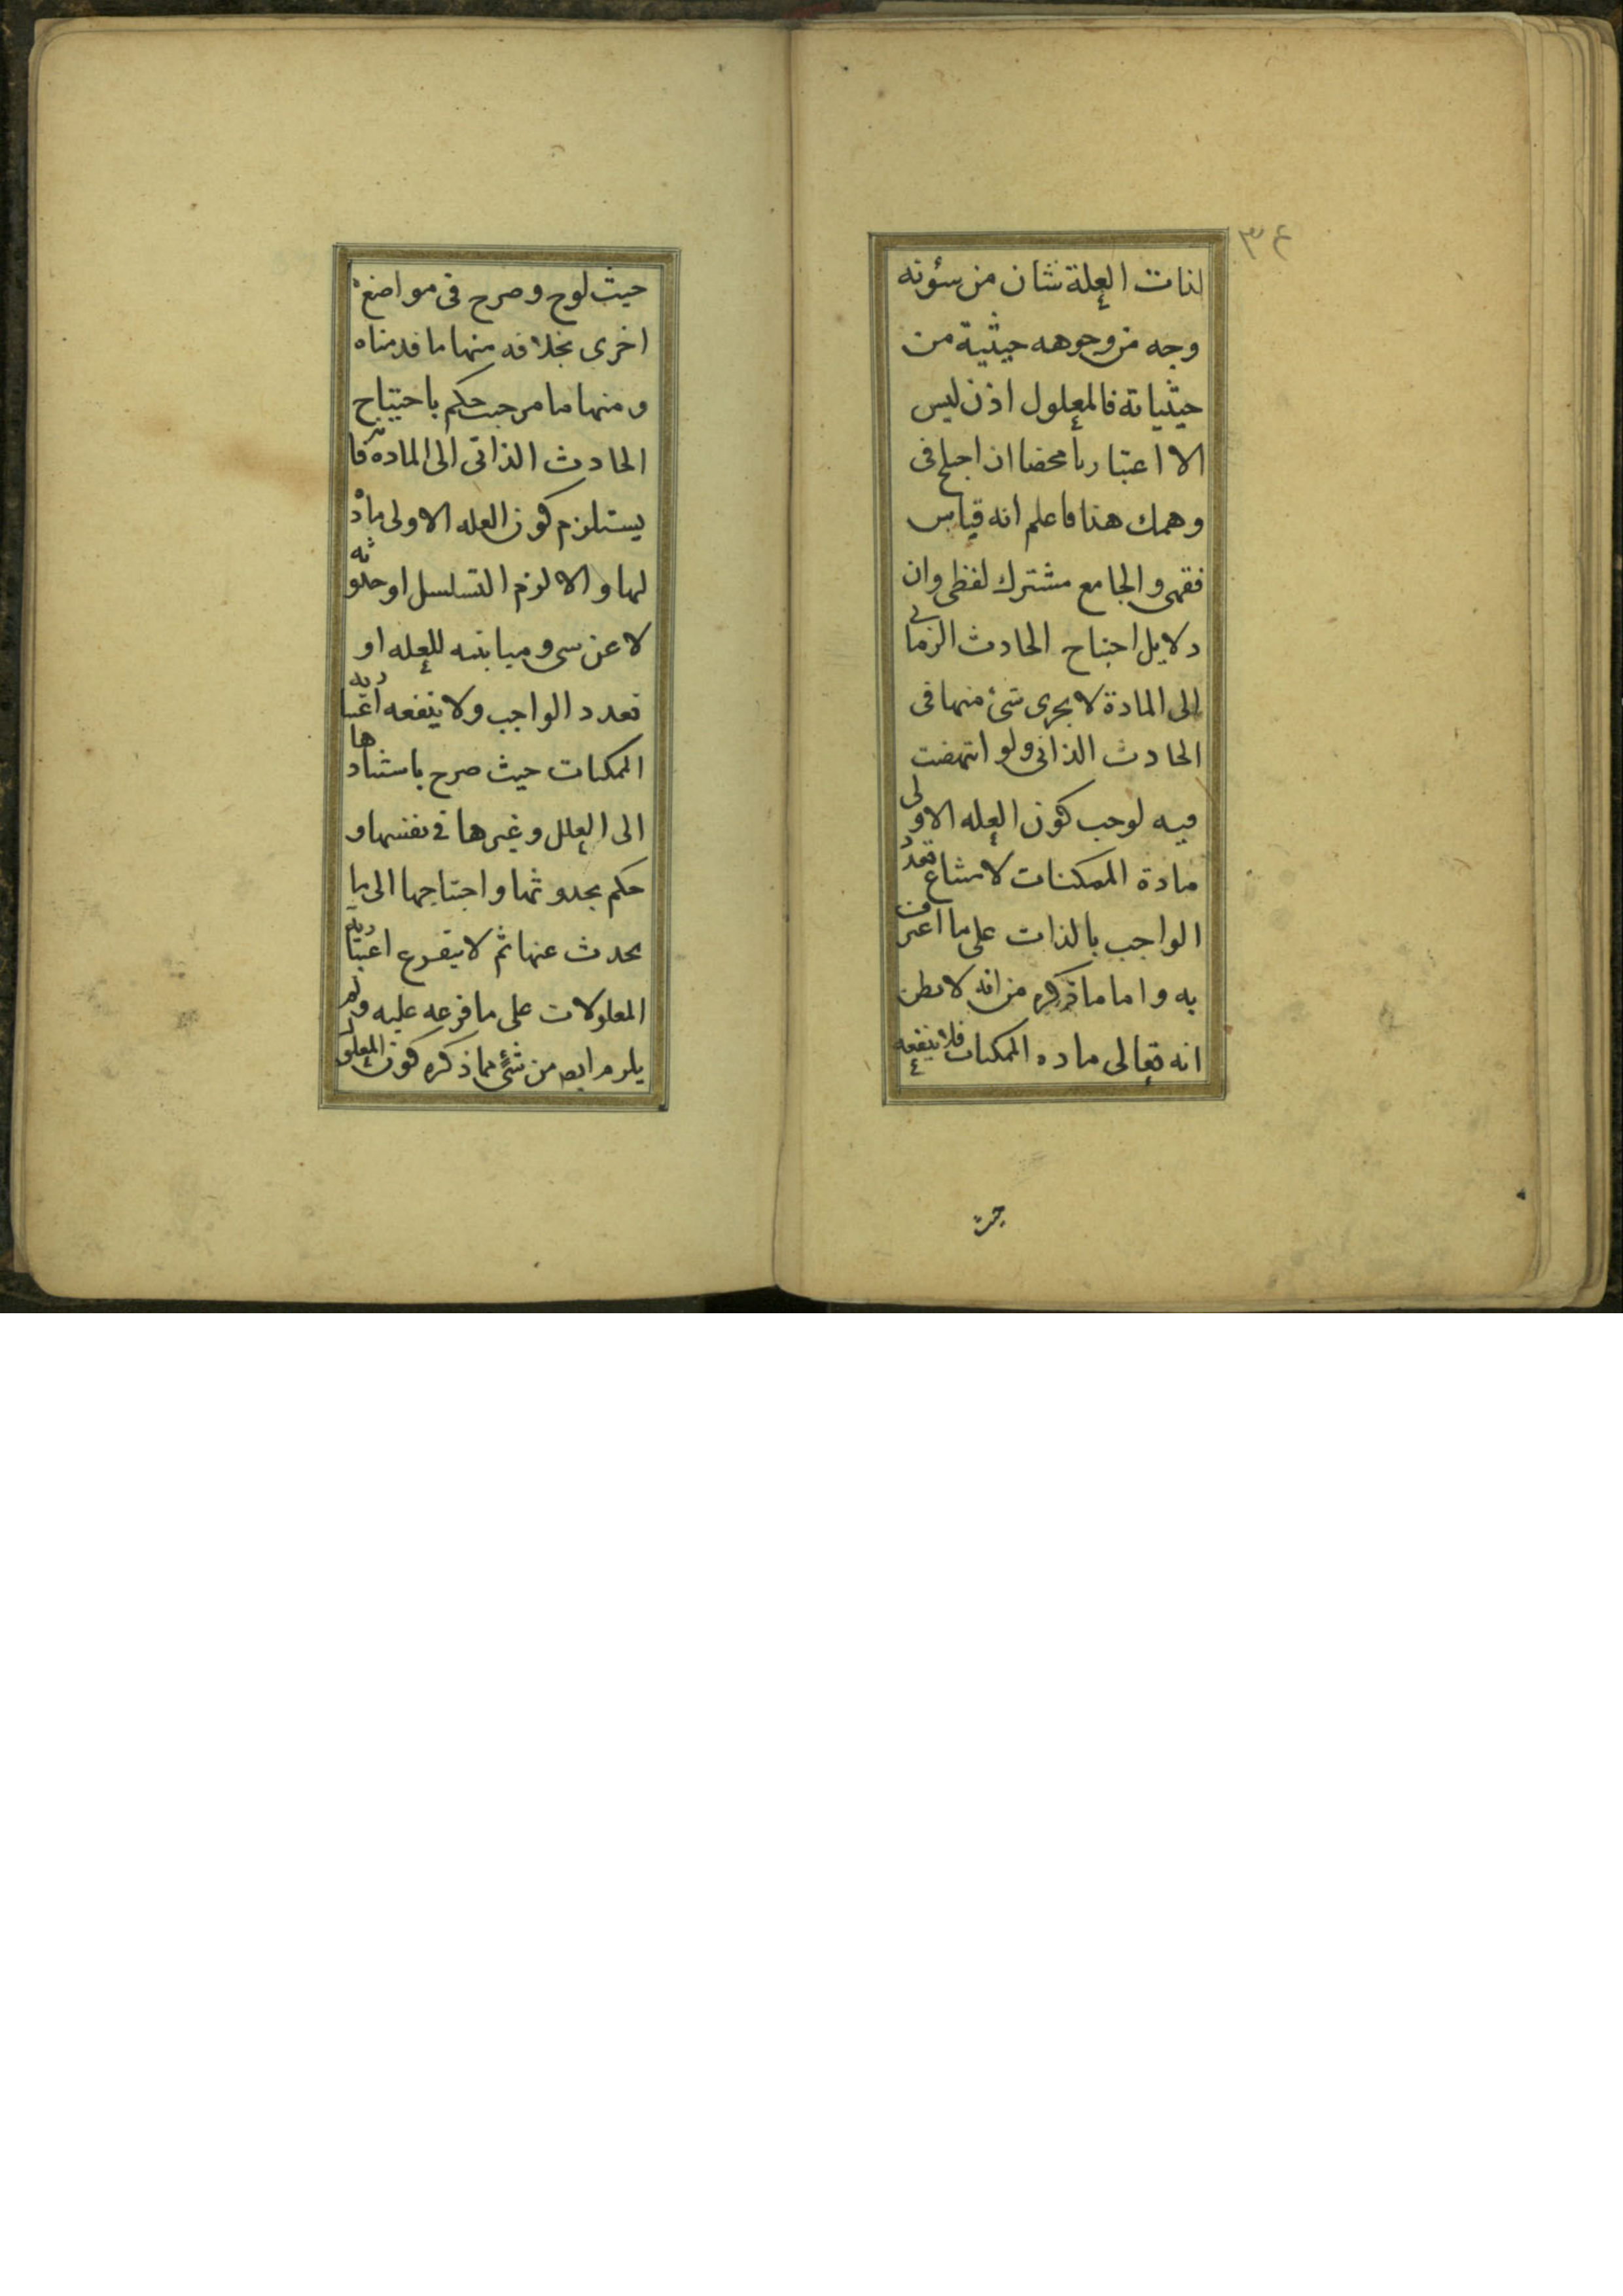 ٣٤
لذات العلة شان من شؤنه
وجه من وجوهه حيثية من
حيثياته فالمعلول اذن ليس
الا اعتباريا محضا ان اختلج فى
وهمك هذا فاعلم انه قياس
فقهى والجامع مشترك لفظى وان
دلايل احتياج الحادث الزمانى
الى المادة لا يجرى شئ منها فى
الحادث الذاتى ولو انتهضت
فيه لوجب كون العله الاولى
مادة الممكنات لامتناع تعدد
الواجب بالذات على ما اعترف
به واما ما ذكره من انه لا يظن
انه تعالى ماده الممكنات فلا ينفعه
حيث
حيث لوح وصرح فى مواضع
اخرى بخلافه منها ما قدمناه
و منها ما مر حيث حكم باحتياج
الحادث الذاتى الى الماده فانه
يستلزم كون العله الاولى مادة
لها والا لزم التسلسل او حدوثه
لا عن شى ومباينته للعله او
تعدد الواجب ولا ينفعه اعتباريه
الممكنات حيث صرح باستنادها
الى العلل وغيرها فى نفسها و
حكم بحدوثها واحتياجها الى ما
يحدث عنها ثم لا يتفرع اعتباريه
المعلولات على ما فرعه عليه ولم
يلزم ايضا من شئ مما ذكره كون المعلول